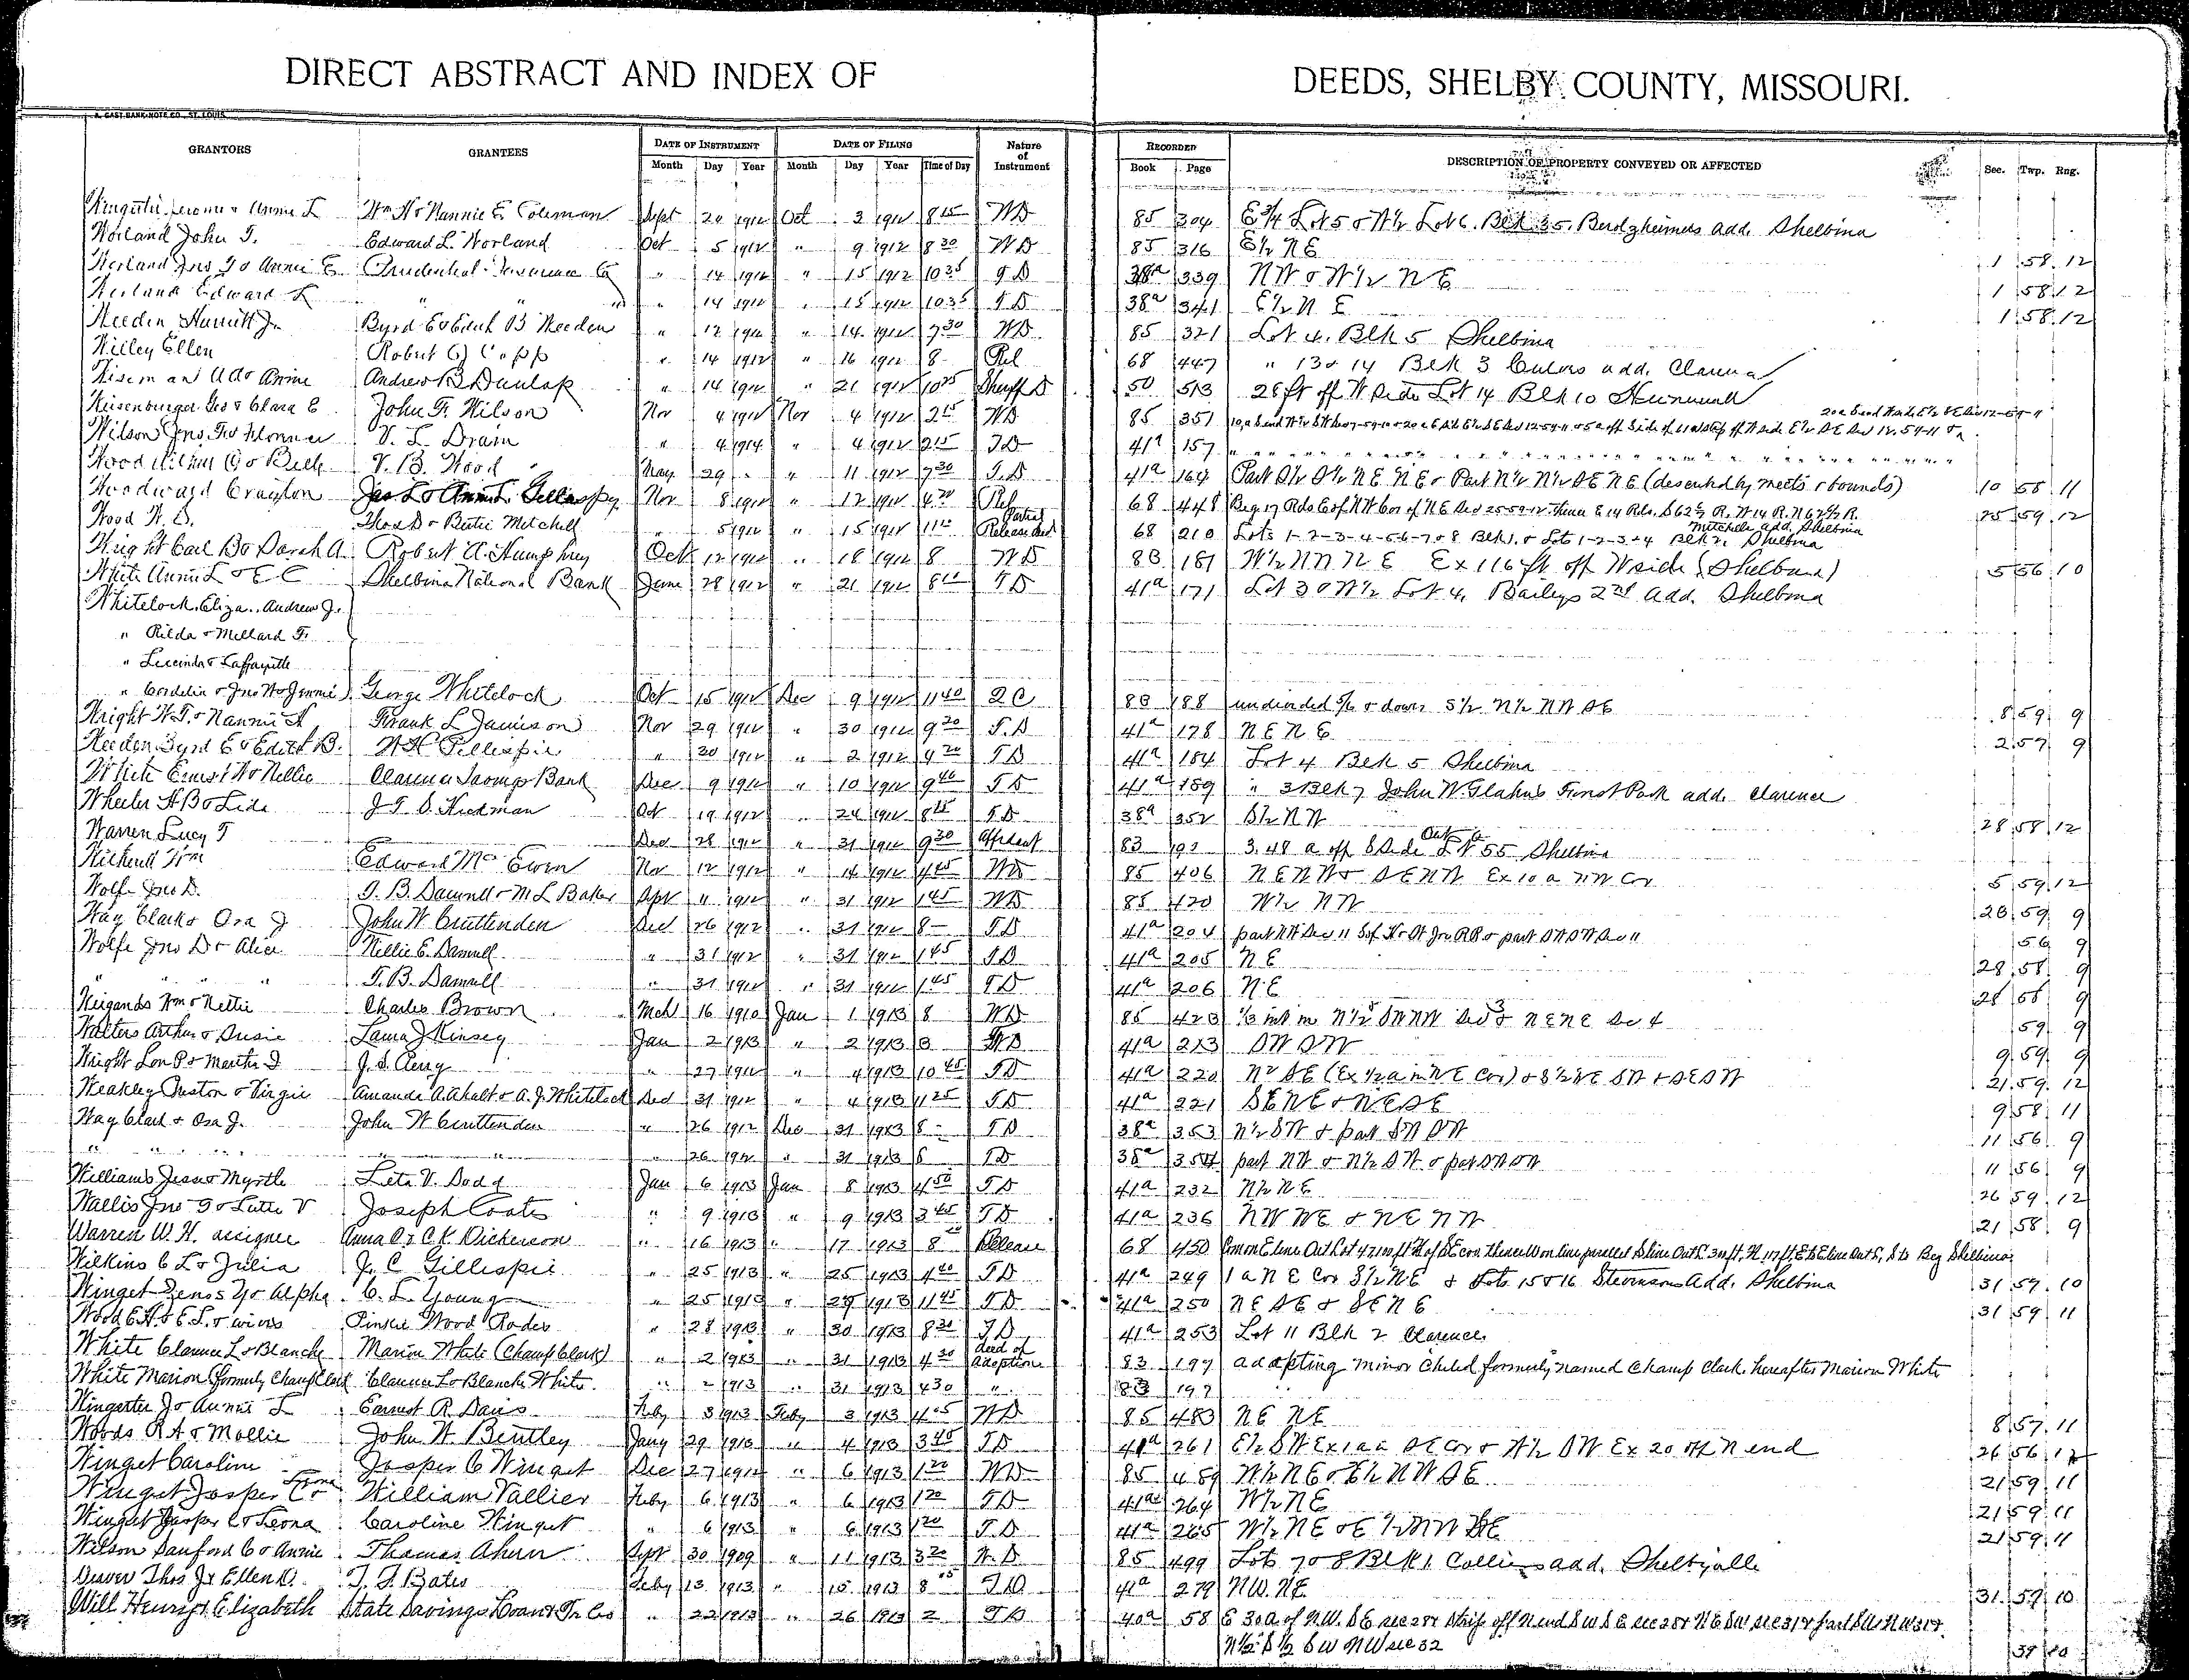 DIRECT ABSTRACT AND INDEX OF DEEDS, SHELBY COUNTY, MISSOURI.
GRANTORS GRANTEES DATE OF INSTRUMENT DATE OF FILING Nature of Instrument RECORDED DESCRIPTION OF PROPERTY CONVEYED OR AFFECTED Sec. Twp. Rng.
Month Day Year Month Day Year Time of Day Book Page
Annie L Wm H & Nannie E. Coleman Sept 20 1912 Oct 3 1912 8 15 WD 85 304 E 3/4 Lot 5 & W 1/2 Lot 6. Blk 35. add. Shelbina
Worland John T. Edward L. Worland Oct 5 1912 " 9 1912 8 30 WD 85 316 E 1/2 NE 1 58 12
Worland Jno T & Annie E Prudential Insurance Co " 14 1912 " 15 1912 10 35 TD 38a 339 NW & W 1/2 NE 1 58 12
Worland Edward L " " " 14 1912 " 15 1912 10 35 TD 38a 341 E 1/2 NE 1 58 12
Byrd E & Edith B Weeden " 12 1912 " 14 1912 7 30 WD 85 321 Lot 4. Blk 5 Shelbina
Willey Ellen Robert G Copp " 14 1912 " 16 1912 8 Rel 68 447 " 13 & 14 Blk 3 add. Clarence
Wiseman A & Annie Andrew B Dunlap " 14 1912 " 21 1912 10 25 Sheriff D 50 513 28 ft off W side Lot 14 Blk 10 Hunnewell
Geo & Clara E John F. Wilson Nov 4 1912 Nov 4 1912 2 15 WD 85 351
Wilson Jno. F & V. L. Drain " 4 1914 " 4 1912 2 15 TD 41a 157
Wood & Belle V. B. Wood May 29 " 11 1912 7 30 TD 41a 164 Part S 1/2 S 1/2 NE NE & Part N 1/2 N 1/2 SE NE (described by meets & bounds) 10 58 11
Woodward Crayton Jas L & Annie L. Gillaspy Nov 8 1912 " 12 1912 4 20 Rel 68 448 Beg 17 Rds E of NW Cor of NE Sec 25-59-12 thence E 14 Rds. S 62 1/2 R. W 14 R. N 62 1/2 R. 25 59 12
Wood W. D. Thos D & Bertie Mitchell " 5 1912 " 15 1912 11 Partial Release Deed 68 210 Lots 1-2-3-4-5-6-7 & 8 Blk 1. & Lots 1-2-3 & 4 Blk 2. Mitchells add. Shelbina
Wright Carl B & Sarah A. Robert A. Humphrey Oct 12 1912 " 18 1912 8 WD 83 181 W 1/2 NW NE Ex 116 ft off W side (Shelbina) 5 56 10
White Annie L & E C Shelbina National Bank June 28 1912 " 21 1912 8 TD 41a 171 Lot 3 & W 1/2 Lot 4. Baileys 2nd add. Shelbina
Whitelock. Eliza.. Andrew J.
" Rilda & Millard F.
" Lucinda & Laffayette
" Cordelia & Jno W & Jennie George Whitelock Oct 15 1912 Dec 9 1912 11 40 QC 83 188 undivided 5/6 & dower S 1/2 N 1/2 NW SE 8 59 9
Wright W. T. & Nannie A Frank L Jamison Nov 29 1912 " 30 1912 9 20 T.D 41a 178 NE NE 2 57 9
Weeden Byrd E & Edith B. W H Gillespie " 30 1912 " 2 1912 9 20 TD 41a 184 Lot 4 Blk 5 Shelbina
White Ernest W & Nellie Clarence Savings Bank Dec 9 1912 " 10 1912 9 40 TD 41a 189 " 3 Blk 7 John W. Glahns Forest Park add. Clarence
Wheeler H B & Lide J. T. S. Hickman Oct 19 1912 " 24 1912 8 15 TD 38a 352 S 1/2 NW 28 58 12
Warren Lucy T Dec 28 1912 " 31 1912 9 30 Affidavit 83 193 3.48 a off S Side Out Lot 55 Shelbina
Edward McEwen Nov 12 1912 " 14 1912 4 45 WD 85 406 NE NW & SE NW Ex 10 a NW Cor 5 59 12
Wolfe Jno D. T. B. Damrell & M L Baker Apr 11 1912 " 31 1912 1 45 WD 85 420 W 1/2 NW 28 59 9
Way Clark & Ora J John W Cruttenden Dec 26 1912 " 31 1912 8 TD 41a 204 part NW Sec 11 S of H & St Jo RR & part SW SW Sec 11 56 9
Wolfe Jno D & Alice Willie E. Damrell " 31 1912 " 31 1912 1 45 TD 41a 205 NE 28 58 9
" " " T. B. Damrell " 31 1912 " 31 1912 1 45 TD 41a 206 NE 28 58 9
Wiegands Wm & Nettie Charles Brown Mch 16 1910 Jan 1 1913 8 WD 85 423 1/3 int in N 1/2 SW NW Sec 3 & NE NE Sec 4 59 9
Walters Arthur & Susie Laura J Kinsey Jan 2 1913 " 2 1913 8 41a 213 SW SW 9 59 9
Wright Lon P & Martha I J. S. " 27 1912 " 4 1913 10 45 TD 41a 220 N 1/2 SE (Ex 1/2 a in NE Cor) & S 1/2 NE SW & SE SW 21 59 12
Weakley Preston & Virgie Amanda A Ahalt & A. J. Whitelock Dec 31 1912 " 4 1913 11 25 TD 41a 221 SE NE & NE SE 9 58 11
Way Clark & Ora J. John W Cruttenden " 26 1912 Dec 31 1913 8 TD 38a 353 N 1/2 SW & part SW SW 11 56 9
" " " 26 1912 " 31 1913 8 TD 38a 354 part NW & N 1/2 SW & part SW SW 11 56 9
Williams Jesse & Myrtle Leta V. Dodd Jan 6 1913 Jan 8 1913 4 50 TD 41a 232 N 1/2 NE 26 59 12
Wallis Jno T & Lutie V Joseph Coats " 9 1913 " 9 1913 3 45 TD 41a 236 NW NE & NE NW 21 58 9
Warren W. H. assignee Anna O & C K Dickerson " 16 1913 " 17 1913 8 Release 68 450
Wilkins C L & Julia J. C Gillespie " 25 1913 " 25 1913 4 40 TD 41a 249 1 a NE Cor S 1/2 NE & Lots 15 & 16 Stevensons Add. Shelbina 31 57 10
Winget Zenos Y & Alpha C. L. Young " 25 1913 " 1913 11 45 TD 41a 250 NE SE & SE NE 31 59 11
Wood E. H. & E. L. & wives Pinkie Wood Rodes " 28 1913 " 30 1913 8 30 TD 41a 253 Lot 11 Blk 2 Clarence
White Clarence L & Blanche Marion White (Champ Clark) " 2 1913 " 31 1913 4 30 deed of adoption 83 197 adopting minor child formerly named Champ Clark. hereafter Marion White
White Marion (formerly Champ Clark Clarence L & Blanche White. " 2 1913 " 31 1913 4 30 " 83 197
J & Annie L Earnest R. Davis Feby 3 1913 Feby 3 1913 4 05 WD 85 483 NE NE 8 57 11
Woods R A & Mollie John W. Bentley Jany 29 1913 " 4 1913 3 45 TD 41a 261 E 1/2 SW Ex 1 a SE Cor & W 1/2 SW Ex 20 off N end 26 56 12
Winget Caroline Jasper C Winget Dec 27 1912 " 6 1913 1 20 WD 85 489 W 1/2 NE & E 1/2 NW SE 21 59 11
Winget Jasper C & Leona William Vallier Feby 6 1913 " 6 1913 1 20 TD 41a 264 W 1/2 NE 21 59 11
Winget Jasper C & Leona Caroline Winget " 6 1913 " 6 1913 1 20 T.D 41a 265 W 1/2 NE & E 1/2 NW SE 21 59 11
Wilson Sanford C & Annie Thomas Ahern Sept 30 1909 " 11 1913 3 20 W. D 85 499 Lots 7 & 8 Blk 1 Colliers add. Shelbyville
Weaver Thos J & Ellen D. T. F. Bates Feby 13 1913 " 15 1913 8 05 T D 41a 279 NW. NE 31 57 10
Will Henry & Elizabeth State Savings Loan & Tr Co " 22 1913 " 26 1913 2 TD 40a 58 E 30 a of N.W. S E sec 28 & strip off N end S W S E sec 28 & N E SW sec 31 & part SW NW 31 &
N 1/2 S 1/2 S W N W sec 32